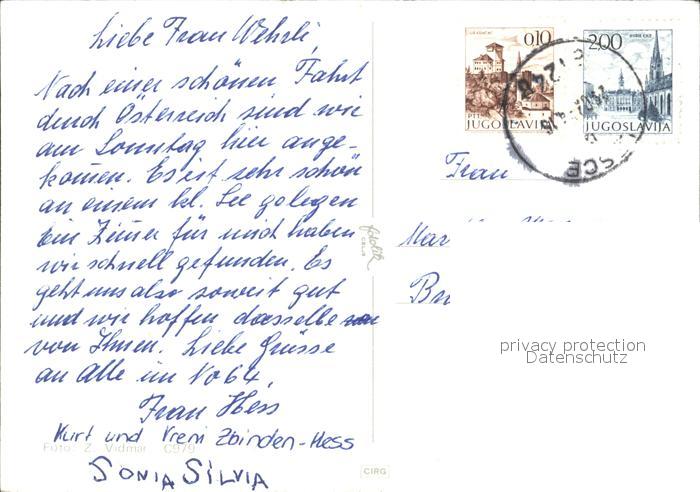 Liebe Frau Wehrli,
Nach einer schönen Fahrt
durch Österreich sind wir
am Sonntag hier ange-
kommen. Es ist sehr schön
an einem kl. See gelegen
Ein Zimmer für mich haben
wir schnell gefunden. Es
geht uns also soweit gut
und wir hoffen dasselbe
von Ihnen. Liebe Grüsse
an Alle im No 64.
Frau Hess
Kurt und Vreni Zbinden-Hess
Foto: Z. Vidmar C979
SONIA SILVIA
fotolik
CELJE
CIRG
0,10
PTT
JUGOSLAVIJA
2,00
JUGOSLAVIJA
Frau
Mar
Bru
privacy protection
Datenschutz